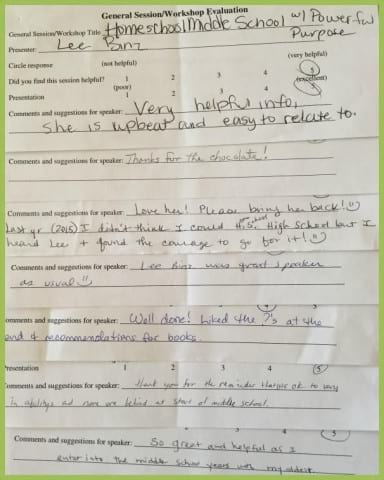 General Session/Workshop Evaluation
General Session/Workshop Title Homeschool Middle School w/ Powerful
Purpose
Presenter: Lee Binz
Circle response (not helpful) (very helpful)
Did you find this session helpful? 1 2 3 4 5
(poor) (excellent)
Presentation 1 2 3 4 5
Comments and suggestions for speaker: Very helpful info,
She is upbeat and easy to relate to.
Comments and suggestions for speaker: Thanks for the chocolate!
Comments and suggestions for speaker: Love her! Please bring her back!
Last yr (2015) I didn't think I could H.S. High School but I
heard Lee + found the courage to go for it!
Comments and suggestions for speaker: Lee Binz was great speaker
as usual
4 5
omments and suggestions for speaker: Well done! Liked the ?'s at the
end & recommendations for books.
resentation 1 2 3 4 5
omments and suggestions for speaker: Thank you for the reminder that it is ok to vary
in abilities and none are behind at start of middle school.
3 4 5
Comments and suggestions for speaker: So great and helpful as I
enter into the middle school years with my oldest.